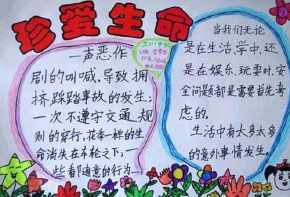 珍爱生命
一声恶作
剧的叫喊,导致拥
挤、踩踏事故的发生;
一次不遵守交通规
则的穿行,花季一样的生
命消失在车轮之下;一
些看随意的行为
当我们无论
是在生活,学中,还
是在娱乐、玩耍时,安
全问题都是需首先考
虑的。
生活中有太多太多
的意外事情发生。